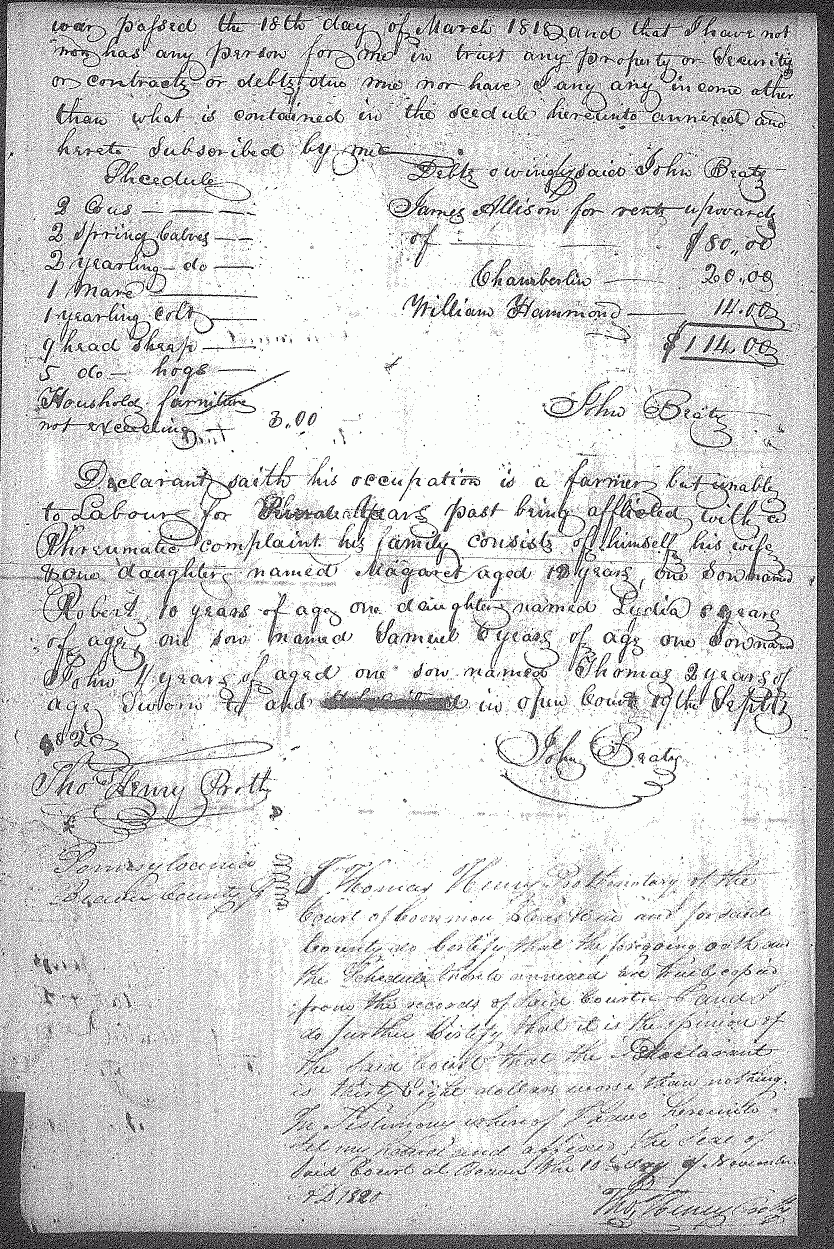 war passed the 18th day of March 1818 and that I have not
nor has any person for me in trust any property or Security
or contracts or debts due me nor have I any any income other
than what is contained in the scedule hereinto annexed and
hereto subscribed by me
Shcedule
2 Cous
2 Spring Calves
2 yearling do
1 Mare
1 yearling colt
9 head sheap
5 do hogs
Houshold furniture
not exceeding 3.00
Debts owing said John Beaty
James Allison for rents upwards
of $80.00
Chamberlin 20.00
William Hammond 14.00
$114.00
John Beaty
Declarant saith his occupation is a farmer but unable
to Labour for years past being afflicted with a
Rhreumatic complaint his family consists of himself his wife
one daughter named Magaret aged years, one son named
Robert 10 years of age one daughter named Lydia 8 years
of age, one son named Samuel 6 years of age one son named
John 4 years of aged one son named Thomas 2 years of
age Sworn to and in open Court 19th Septr
1820
John Beaty
Thos Henry Proth
Pennsylvania
Beaver County Ss
I Thomas Henry Prothonotary of the
Court of Common Pleas in and for said
County do Certify that the foregoing oath and
the Schedule thereto annexed are true copies
from the records of Said Court and I
do further Certify that it is the opinion of
the Said Court that the Declarant
is thirty Eight dollars worse than nothing.
In Testimony whereof I have hereunto
Set my hand and affixed the Seal of
Said Court at Beaver the 10th day of November
AD 1820
Thos Henry Proth